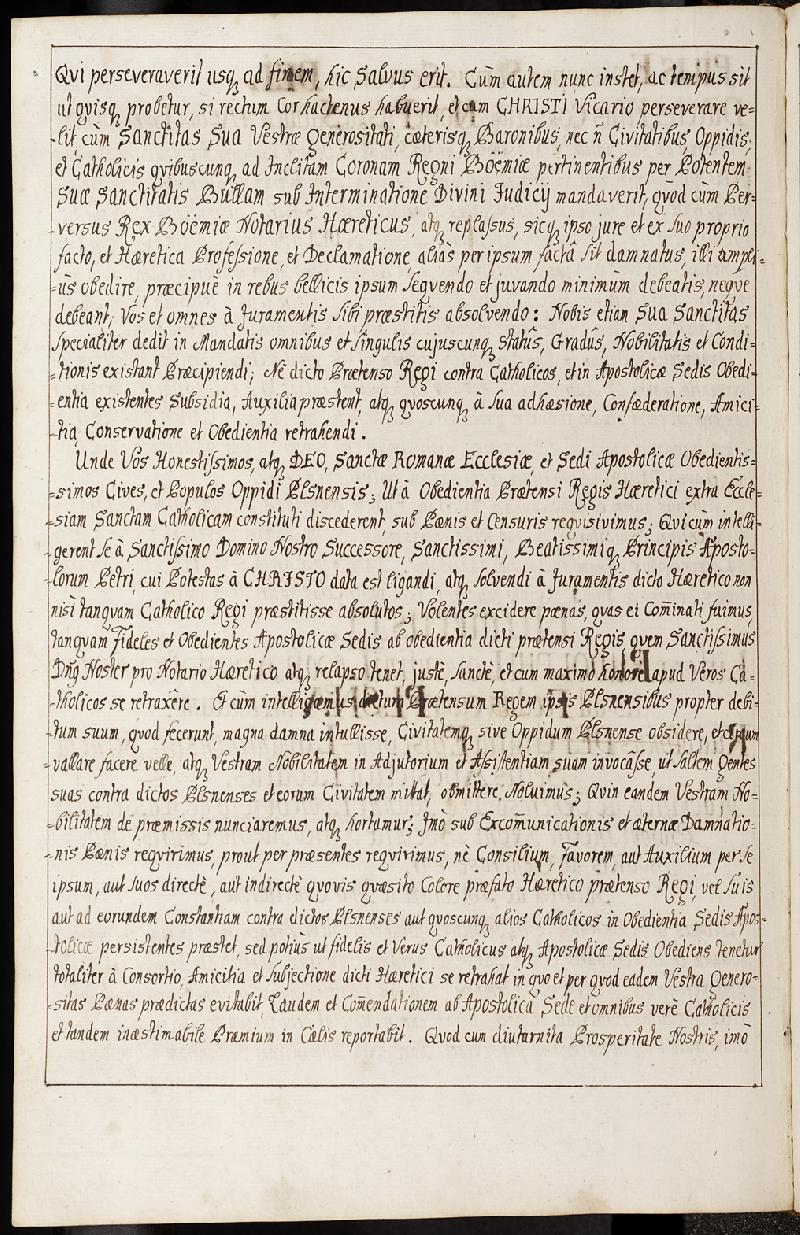 Qui perseveraverit usq; ad finem, hic Salvus erit. Cùm autem nunc instet, ac tempus sit
ut quisq; probetur, si rectum Cor hactenus habuerit, et cum CHRISTI Vicario perseverare ve=
=lit, cùm Sanctitas Sua Vestræ Generositati, cæterisq; Baronibus, nec ñ Civitatibus, Oppidis,
et Catholicis quibuscunq; ad Inclitam Coronam Regni Böemiæ pertinentibus per Potentem
Suæ Sanctitatis Bullam sub Interminatione Divini Judicij mandaverit, quòd cùm Per=
=versus Rex Böemiæ Notarius Hæreticus, atq; replassus, sicq; ipso jure et ex suo proprio
facto, et Hæretica Professione, et Declamatione aliàs per ipsum factâ sit damnatus, illi ampli=
=ùs obedire, præcipuè in rebus bellicis ipsum sequendo et juvando minimùm debeatis, neque
debeant, Vos et omnes à Juramentis Sibi præstitis absolvendo: Nobis etiam Sua Sanctitas
Specialiter dedit in Mandatis omnibus et singulis cujuscunq; statûs, Gradûs, Nobilitatis et Condi=
=tionis existant Præcipiendi; Nè dicto Prætenso Regi contra Catholicos, et in Apostolicæ Sedis Obedi=
=entia existentes Subsidia, Auxilia præstent, atq; quoscunq; à Sua adhæsione, Confæderatione, Amici=
=tia, Conservatione et Obedientia retrahendi.
Unde Vos Honestissimos, atq; DEO, Sanctæ Romanæ Ecclesiæ, et Sedi Apostolicæ Obedientis=
=simos Cives, et Populos Oppidi Plsnensis; Ut à Obedientia Prætensi Regis Hæretici extra Eccle=
=siam Sanctam Catholicam constituti discederent, sub Pænis et Censuris requisivimus; Qui cùm intelli=
=gerent se à Sanctissimo Domino Nostro Successore, Sanctissimi, Beatissimiq; Principis Aposto=
lorum Petri, cui Potestas à CHRISTO data est ligandi, atq; solvendi à Juramentis dicto Hæretico non
nisi tanquam Catholico Regi præstitisse absolutos; Volentes excidere pœnas, quas ei Com̃inati fuimus,
tanquam fideles et Obedientes Apostolicæ Sedis ab obedientia dicti prætensi Regis, quem Sanctissimus
Dn̄s Noster pro Notario Hæretico atq; relapso tenet, justè, sanctè, et cum maximo honore apud Veros Ca=
=tholicos se retraxêre. Et cùm intelligamus dictum Prætensum Regem ipsis Plsnensibus propter debi=
tum suum, quod fecerunt, magna damna intulisse, Civitatemq; sive Oppidum Plsnense obsidere, et
vallare facere velle, atq; Vestram Nobilitatem in Adjutorium et Assistentiam suam invocâsse, ut saltem Gentes
suas contra dictos Plsnenses et eorum Civitatem mittat, obmittere Noluimus; Quin eandem Vestram No=
=bilitatem de præmissis nunciaremus, atq; hortamur; Imò sub Excom̃unicationis et æternæ Damnatio=
=nis Pænis requirimus, prout per præsentes requirimus, nè Consilium, favorem, aut Auxilium per se
ipsum, aut suos directè, aut indirectè quovis quæsito Colore præfato Hæretico prætenso Regi, vel suis
aut ad eorundem Constantiam contra dictos Plsnenses aut quoscunq; alios Catholicos in Obedientia Sedis Apos=
=tolicæ persistentes præstet, sed potiùs ut fidelis et Verus Catholicus atq; Apostolicæ Sedis Obediens tenetur
totaliter à Consortio, Amicitia et subjectione dicti Hæretici se retrahat in quo et per quod eadem Vestra Genero=
=sitas Pænas prædictas evitabit, Laudem et Com̃endationem ab Apostolica Sede et omnibus verè Catholicis
et tandem inæstimabile Præmium in Cælis reportabit. Quod cum diuturnita Prosperitate Nostris, imò